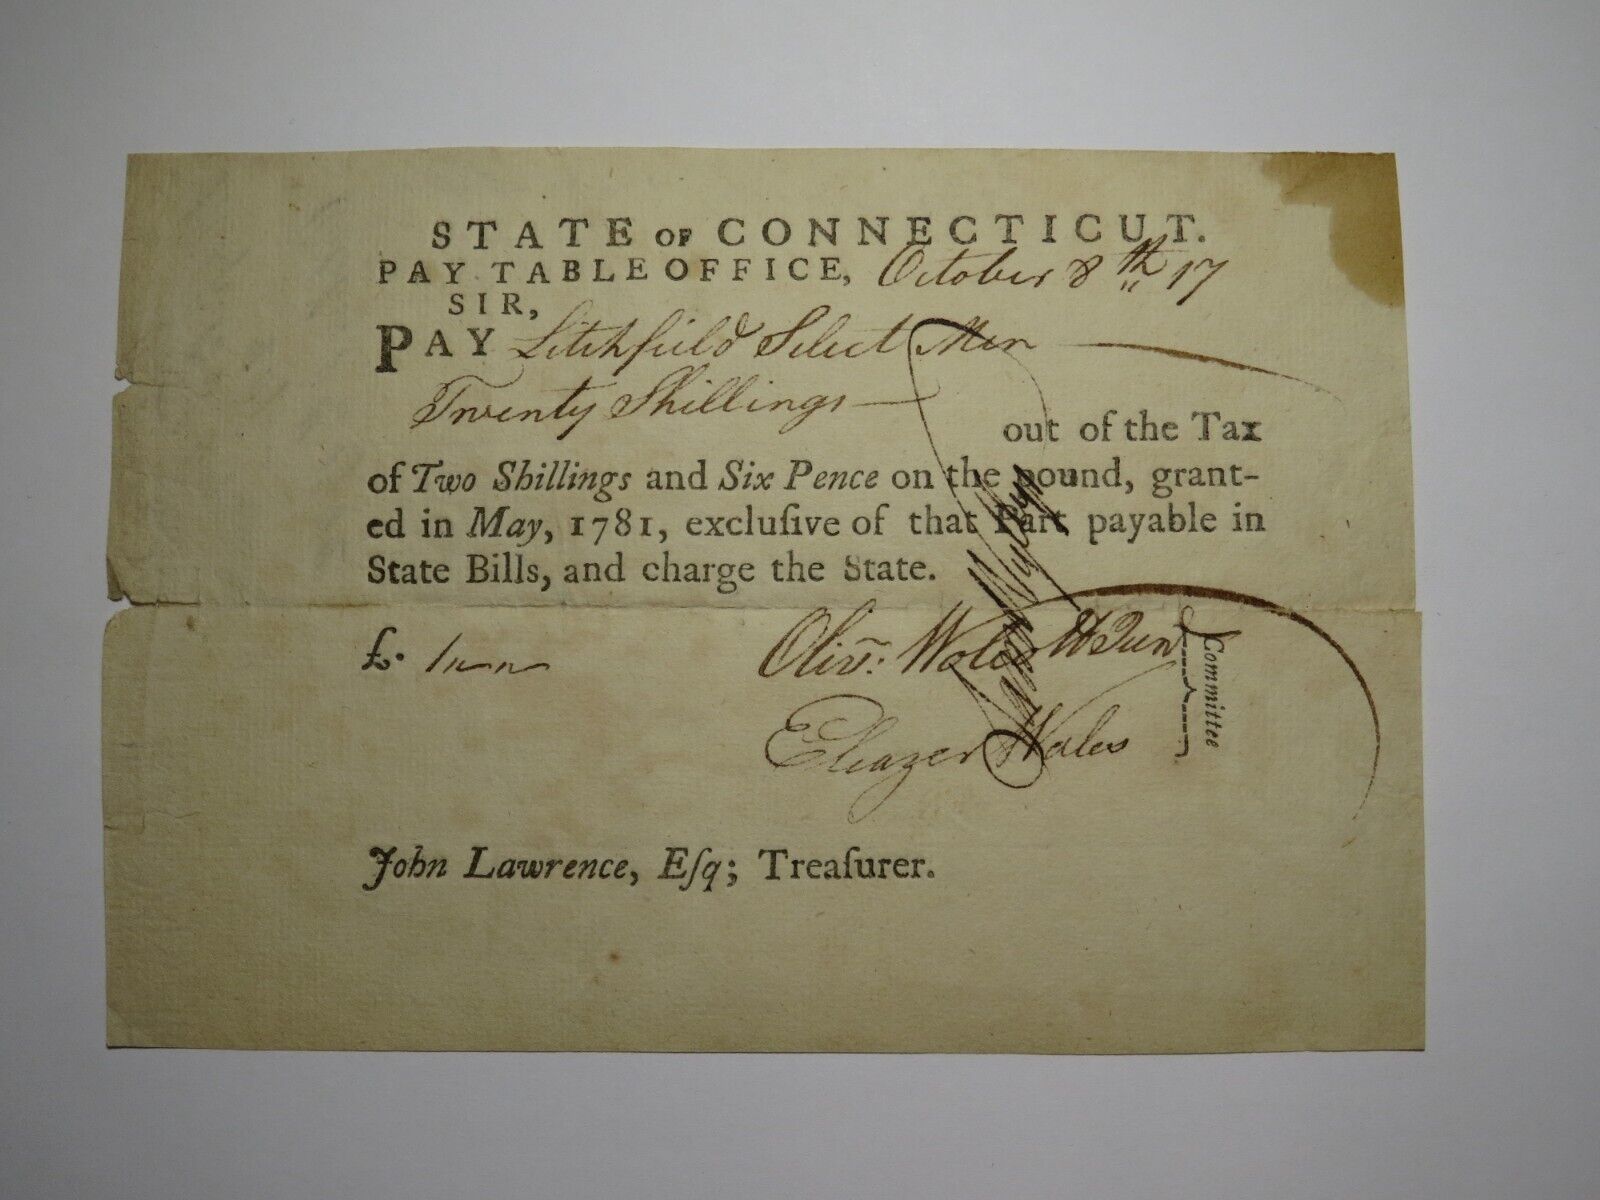 STATE OF CONNECTICUT.
PAY TABLE OFFICE, October 8th 17
SIR,
PAY Litchfield Select Men
Twenty Shillings
out of the Tax
of Two Shillings and Six Pence on the pound, grant-
ed in May, 1781, excluſive of that Part payable in
State Bills, and charge the State.
£. 1
Olivr: Wolcott Jun
Eleazer Wales
Committee
John Lawrence, Eſq; Treaſurer.